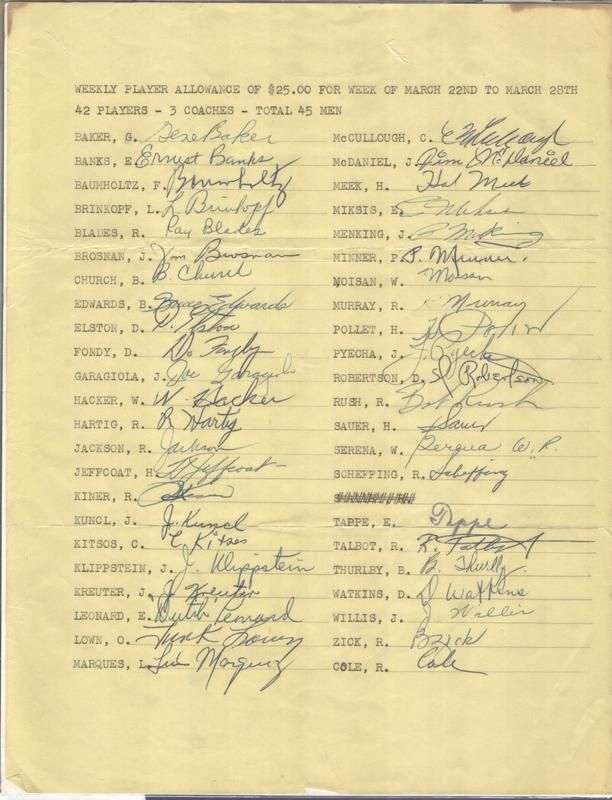 WEEKLY PLAYER ALLOWANCE OF $25.00 FOR WEEK OF MARCH 22ND TO MARCH 28TH
42 PLAYERS - 3 COACHES - TOTAL 45 MEN
BAKER, G. Gene Baker
BANKS, E Ernest Banks
BAUMHOLTZ, F. Baumholtz
BRINKOPF, L. L Brinkopf
BLADES, R. Ray Blades
BROSNAN, J. Jim Brosnan
CHURCH, B. B Church
EDWARDS, B. Bruce Edwards
ELSTON, D. D. Elston
FONDY, D. Do Fondy
GARAGIOLA, J. Joe Garagiola
HACKER, W. W. Hacker
HARTIG, R. R Hartg
JACKSON, R. Jackson
JEFFCOAT, H. H Jeffcoat
KINER, R.
KUNCL, J. J. Kuncl
KITSOS, C. C Kitsos
KLIPPSTEIN, J. J. Klippstein
KREUTER, J. J Kreuter
LEONARD, E. Dutch Leonard
LOWN, O. Turk Lown
MARQUES, L. Luis Marquez
MCCULLOUGH, C. C McCullough
MCDANIEL, J. Jim McDaniel
MEEK, H. Hal Meek
MIKSIS, E. E Miksis
MENKING, J.
MINNER, P. P. Minner.
MOISAN, W. Moisan
MURRAY, R. Murray
POLLET, H. H Pollet
PYECHA, J. J. Pyecha
ROBERTSON, D. D Robertson
RUSH, R. Bob Rush
SAUER, H. Sauer
SERENA, W. Serena W. R.
SCHEFFING, R. Scheffing
TAPPE, E. Tappe
TALBOT, R. R. Talbot
THURLBY, B. B. Thurlby
WATKINS, D. D Watkins
WILLIS, J. J. Willis
ZICK, R. B Zick
COLE, R. Cole